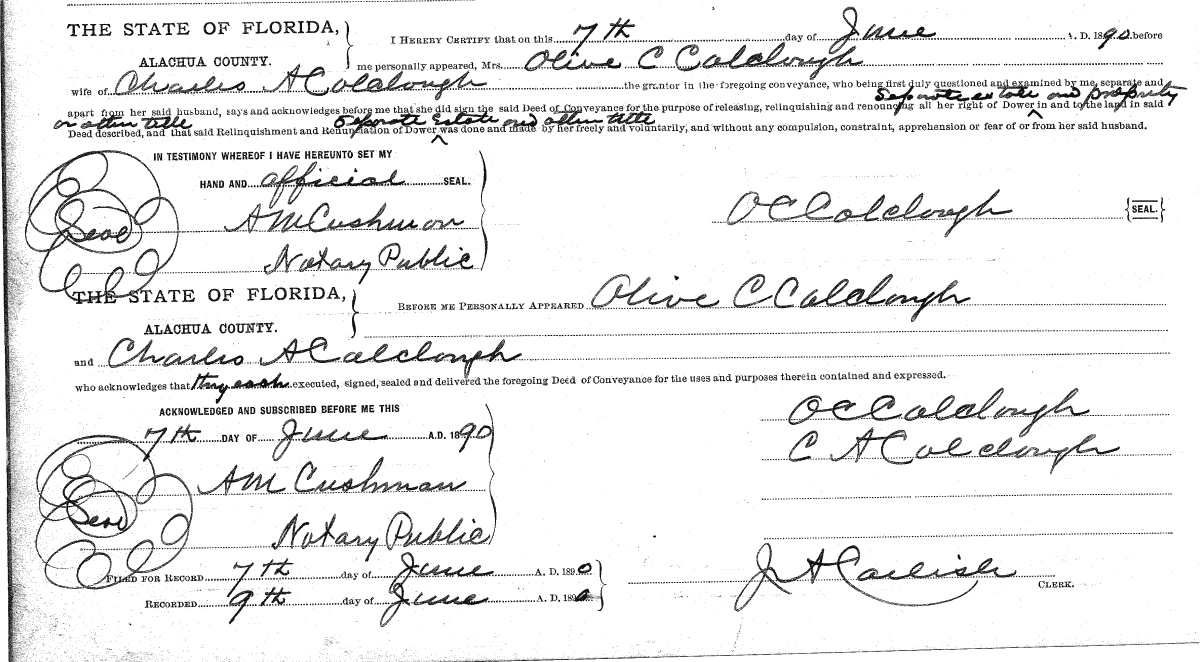 THE STATE OF FLORIDA,
ALACHUA COUNTY.
I HEREBY CERTIFY that on this 7th day of June A. D. 1890 before
me personally appeared, Mrs. Olive C Colclough
wife of Charles A Colclough the grantor in the foregoing conveyance, who being first duly questioned and examined by me, separate and
Separate estate and property
apart from her said husband, says and acknowledges before me that she did sign the said Deed of Conveyance for the purpose of releasing, relinquishing and renouncing all her right of Dower in and to the land in said
or other title Separate Estate and other title
Deed described, and that said Relinquishment and Renunciation of Dower ^ was done and made by her freely and voluntarily, and without any compulsion, constraint, apprehension or fear of or from her said husband.
IN TESTIMONY WHEREOF I HAVE HEREUNTO SET MY
HAND AND official SEAL.
Seal
A M Cushman
O C Colclough {SEAL.}
Notary Public
THE STATE OF FLORIDA,
ALACHUA COUNTY.
BEFORE ME PERSONALLY APPEARED Olive C Colclough
and Charles A Colclough
who acknowledges that they each executed, signed, sealed and delivered the foregoing Deed of Conveyance for the uses and purposes therein contained and expressed.
ACKNOWLEDGED AND SUBSCRIBED BEFORE ME THIS
7th DAY OF June A.D. 1890
O C Colclough
C A Colclough
A M Cushman
Seal
Notary Public
FILED FOR RECORD 7th day of June A. D. 1890
RECORDED 9th day of June A. D. 1890
J A Carlisle CLERK.